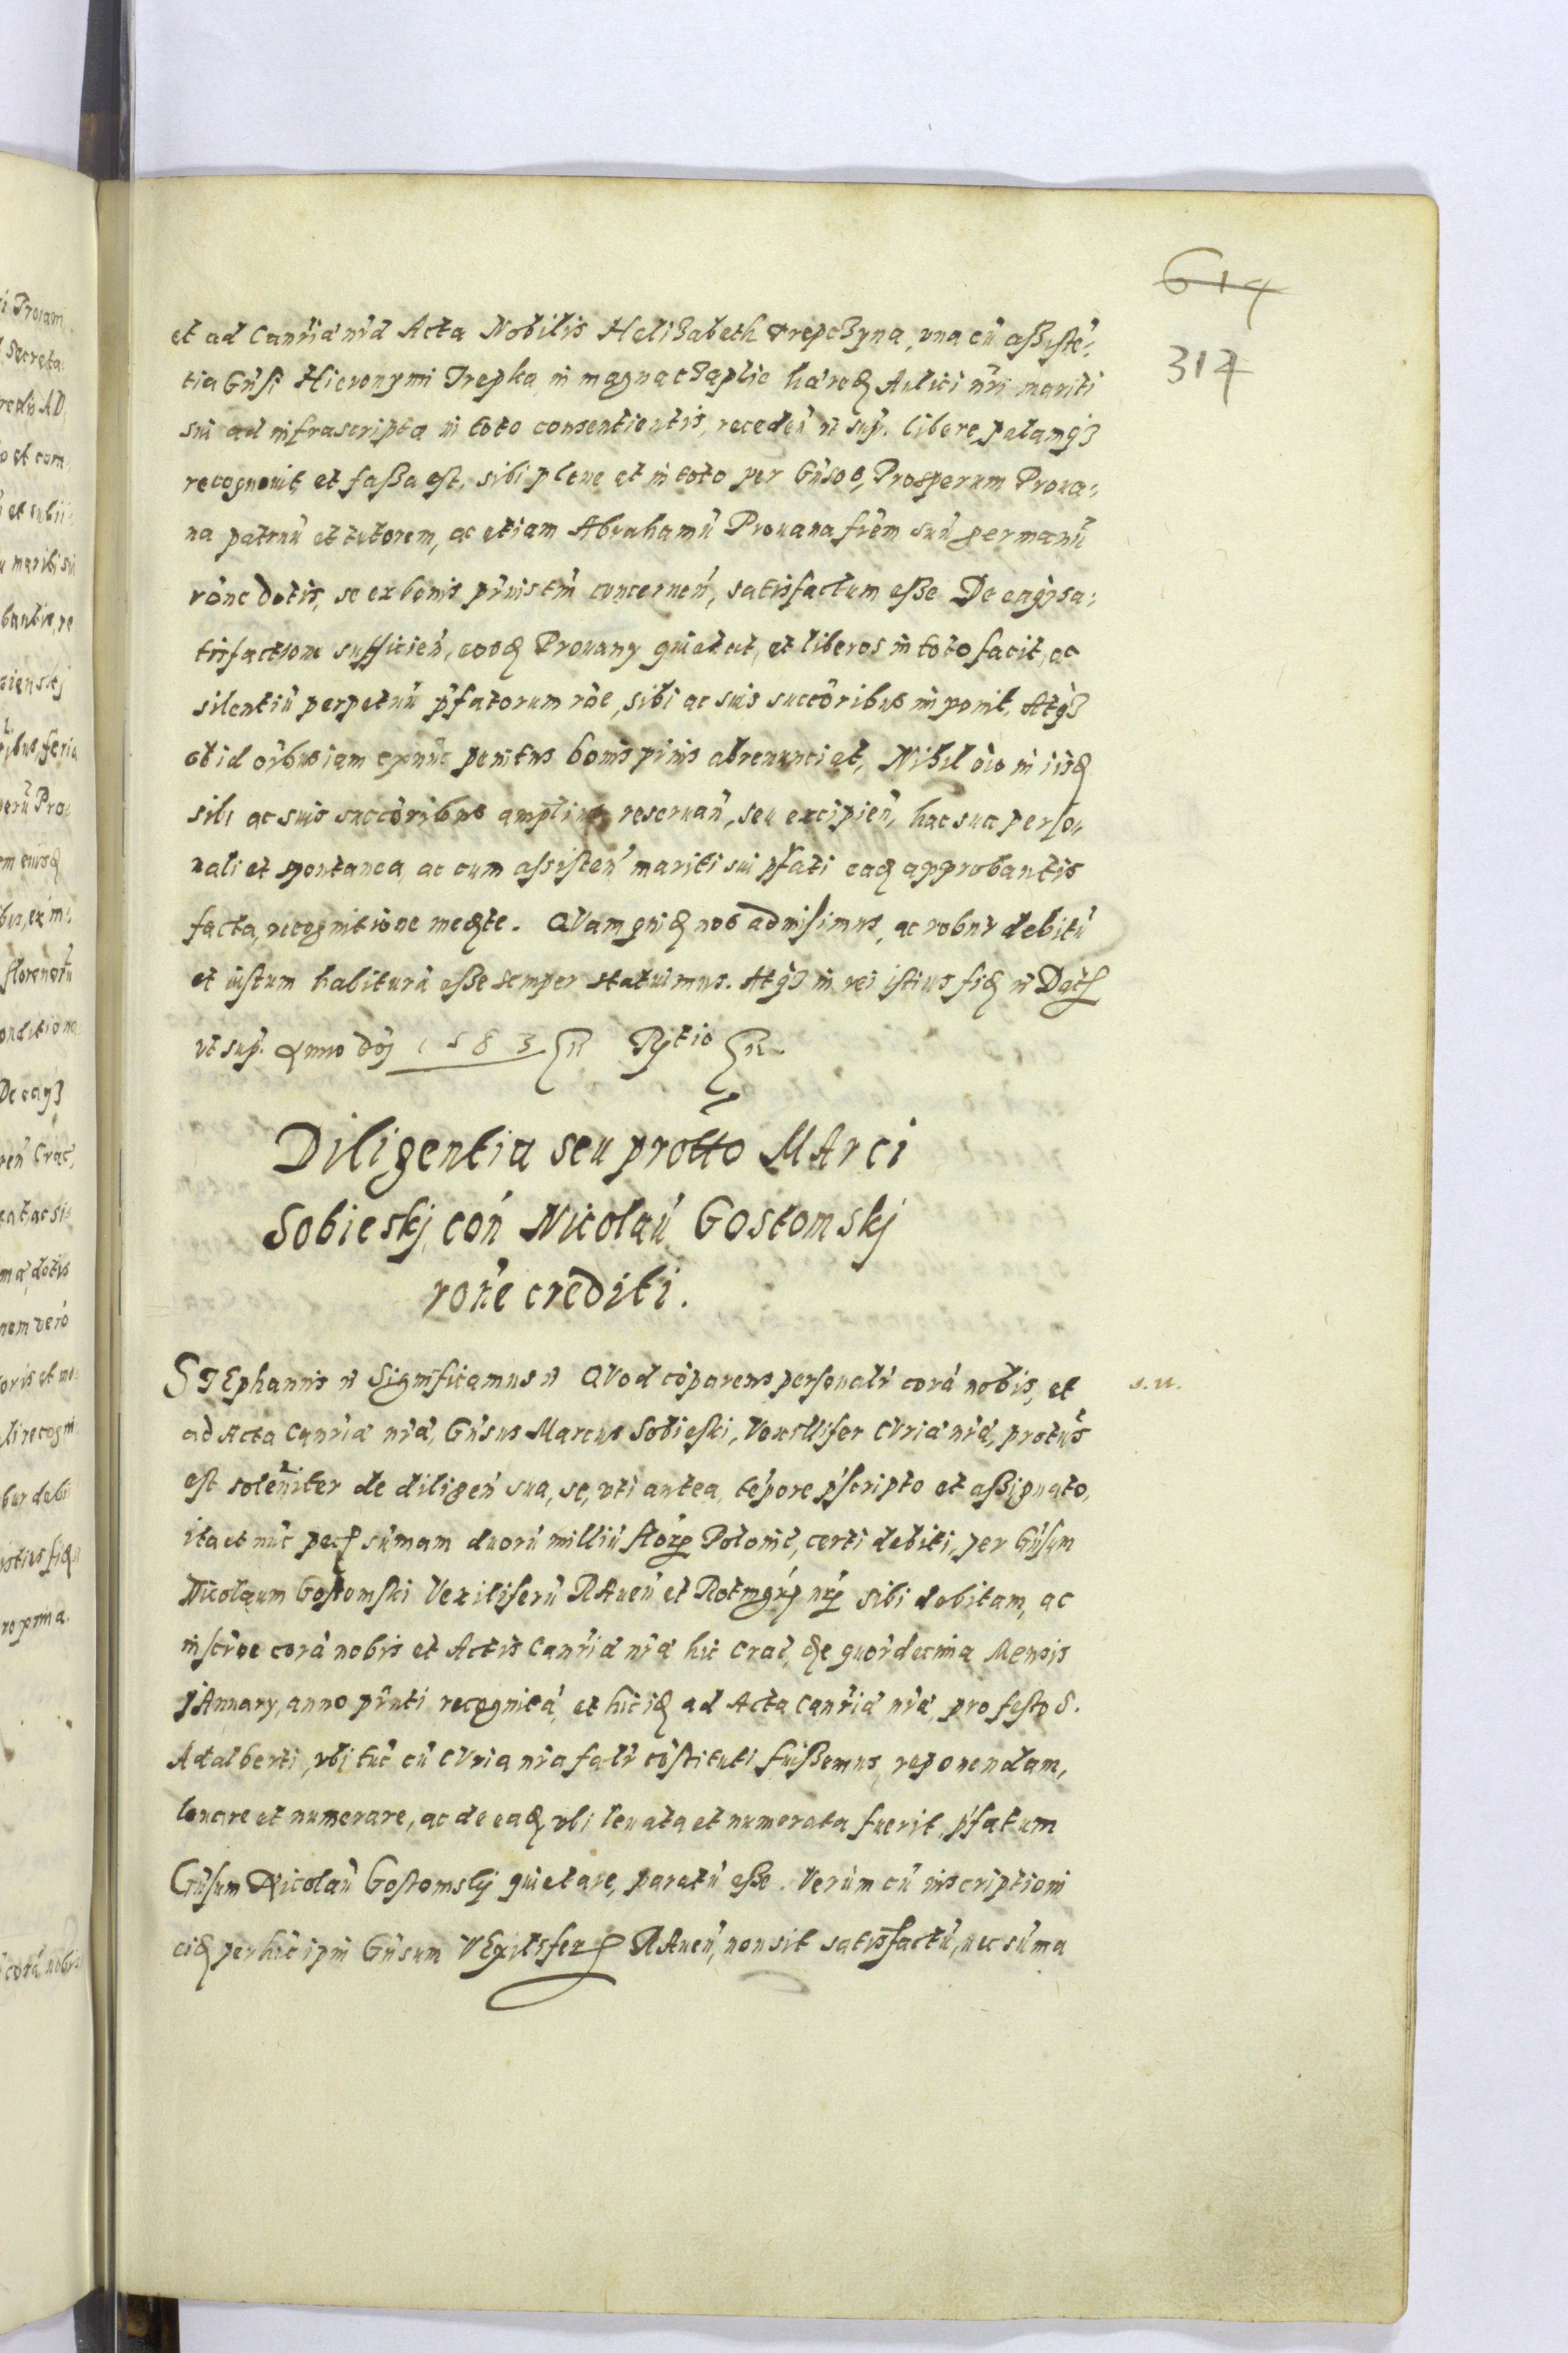 614
317
et ad Canr̃iā nr̃ā Acta Nobilis Helizabeth Trepczyna, vna cũ assistẽ-
tia Gñsi Hieronymi Trepka in magna czaplie hæred Aulici nr̃i mariti
sui ad infrascripta in toto consentientis, receden̄ ñ sup. libere palamqʒ
recognouit et fassa est, sibi plene et in toto per Gñsos, Prosperum Proua-
na patruũ et tutorem, ac etiam Abrahamũ Prouana fr̃em suũ germanũ
rõne dotis, se ex bonis pr̃nis tm̃ concernen̄, satisfactum esse De eaqʒ sa-
tisfactione sufficien̄, eosd Prouany quietat, et liberos in toto facit, ac
silentiũ perpetuũ p̃fatorum rõe, sibi ac suis succõribus imponit, Atqʒ
ob id oĩbus iam exnũc penitus bonis pr̃nis abrenunciat, Nihil õio in iisd
sibi ac suis succõribus amplius reseruan̄, seu excipien̄, hac sua perso-
nali et spontanea, ac cum assisten̄ mariti sui p̃fati ead approbantis
facta, recognitione medte. QVam quid nos admisimus, ac robur debitũ
et iustum habiturã esse semper statuimus. Atqʒ in rei istius fid ñ Dat
vt sup. Anno dñj 1583
Diligentia seu protto MArci
Sobieskj con̄ Nicolaũ Gostomskj
rõne crediti.
STEphanus ñ Significamus ñ QVod cõparens personalr̃ corã nobis, et
s. n.
ad Acta Canr̃iā nr̃ā, Gñsus Marcus Sobieski, Vexillifer CVriā nr̃ā, protus
est solenniter de diligen̄ sua, se, vti antea, tẽpore p̃scripto et assignato,
ita et nũc pec sũmam duorũ milliũ flor Polonic̃, certi debiti, per Gñsum
Nicolaum Gostomski Vexiliferũ RAuen̄ et Rotmgr̃ nr̃ sibi debitam, ac
inscr̃oe corã nobis et Actis Canr̃iā nr̃ā hic Crac̃, die quordecima Mensis
jAnuary, anno pr̃nti recognitã, et hic id ad Acta Canr̃iā nr̃ā, pro festo S.
Adalberti, vbi tũc cũ CVria nr̃a falr̃ cõstituti fuissemus, reponendam,
leuare et numerare, ac de ead, vbi leuata et numerata fuerit, p̃fatum
Gñsum Nicolaũ Gostomskj quietare, paratũ esse. Verùm cũ inscriptioni
eid per hũc ipm̃ Gñsum VExilifer RAuen̄, non sit satisfactũ, nec sũma